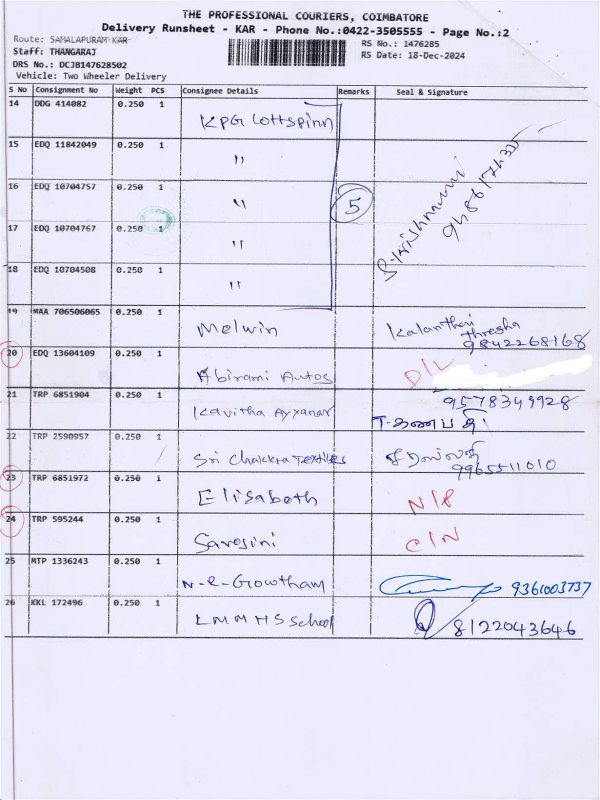 THE PROFESSIONAL COURIERS, COIMBATORE
Delivery Runsheet - KAR - Phone No.:0422-3505555 - Page No.:2
Route: SAMALAPURAM KAR
RS No.: 1476285
Staff: THANGARAJ
RS Date: 18-Dec-2024
DRS No.: DCJB147628502
Vehicle: Two Wheeler Delivery
S No Consignment No Weight PCS Consignee Details Remarks Seal & Signature
14 DDG 414082 0.250 1 KPG Cottspinn
15 EDQ 11842049 0.250 1 "
16 EDQ 10704757 0.250 1 " 5
17 EDQ 10704767 0.250 1 "
18 EDQ 10704508 0.250 1 "
19 MAA 706506065 0.250 1 Melwin 9842268168
20 EDQ 13604109 0.250 1 Abirami Autos D/L
21 TRP 6851904 0.250 1 Kavitha Ayyanar 9578349928
T.கணபதி
22 TRP 2590957 0.250 1 Sri Chakkra Textiles 9965511010
23 TRP 6851972 0.250 1 Elisabeth N/P
24 TRP 595244 0.250 1 Sarosini C/N
25 MTP 1336243 0.250 1 N-R-Growtham 9361003737
26 KKL 172496 0.250 1 LMMHS School 8122043646